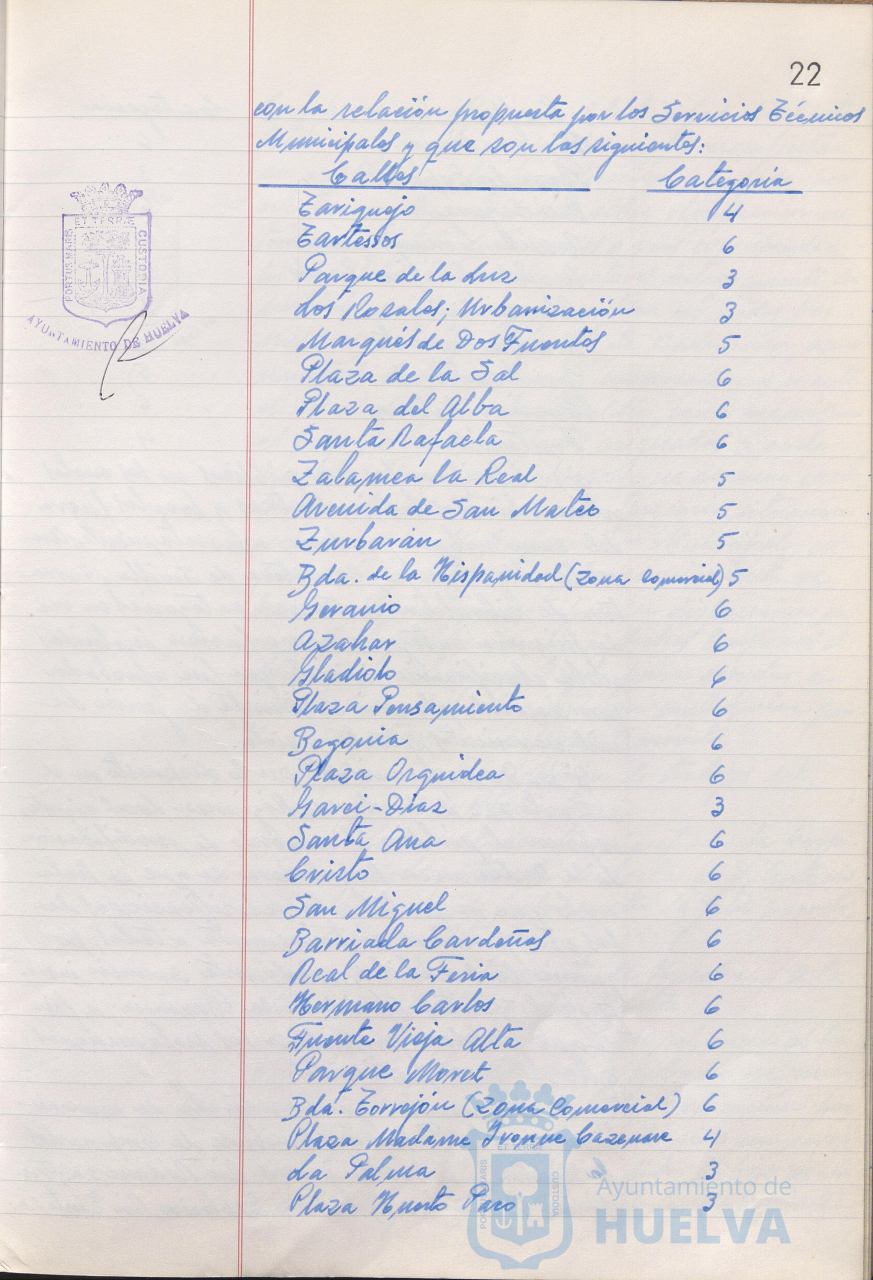 22
con la relación propuesta por los Servicios Técnicos
Municipales y que son las siguientes:
Calles Categoría
Zariquejo 4
Tartessos 6
Parque de la Luz 3
Los Rosales; Urbanización 3
Marqués de Dos Fuentes 5
Plaza de la Sal 6
Plaza del Alba 6
Santa Rafaela 6
Zalamea la Real 5
Avenida de San Mateo 5
Zurbarán 5
Bda. de la Hispanidad (Zona Comercial) 5
Geranio 6
Azahar 6
Gladiolo 6
Plaza Pensamiento 6
Begonia 6
Plaza Orquidea 6
Garci-Díaz 3
Santa Ana 6
Cristo 6
San Miguel 6
Barriada Cardeñas 6
Real de la Feria 6
Hermano Carlos 6
Fuente Vieja Alta 6
Parque Moret 6
Bda. Torrejón (Zona Comercial) 6
Plaza Madame Ivonne Cazenave 4
La Palma 3
Plaza Huerto Paco 3
PORTUS MARIS ET TERRAE CUSTODIA
AYUNTAMIENTO DE HUELVA
PORTUS MARIS ET TERRAE CUSTODIA
Ayuntamiento de
HUELVA